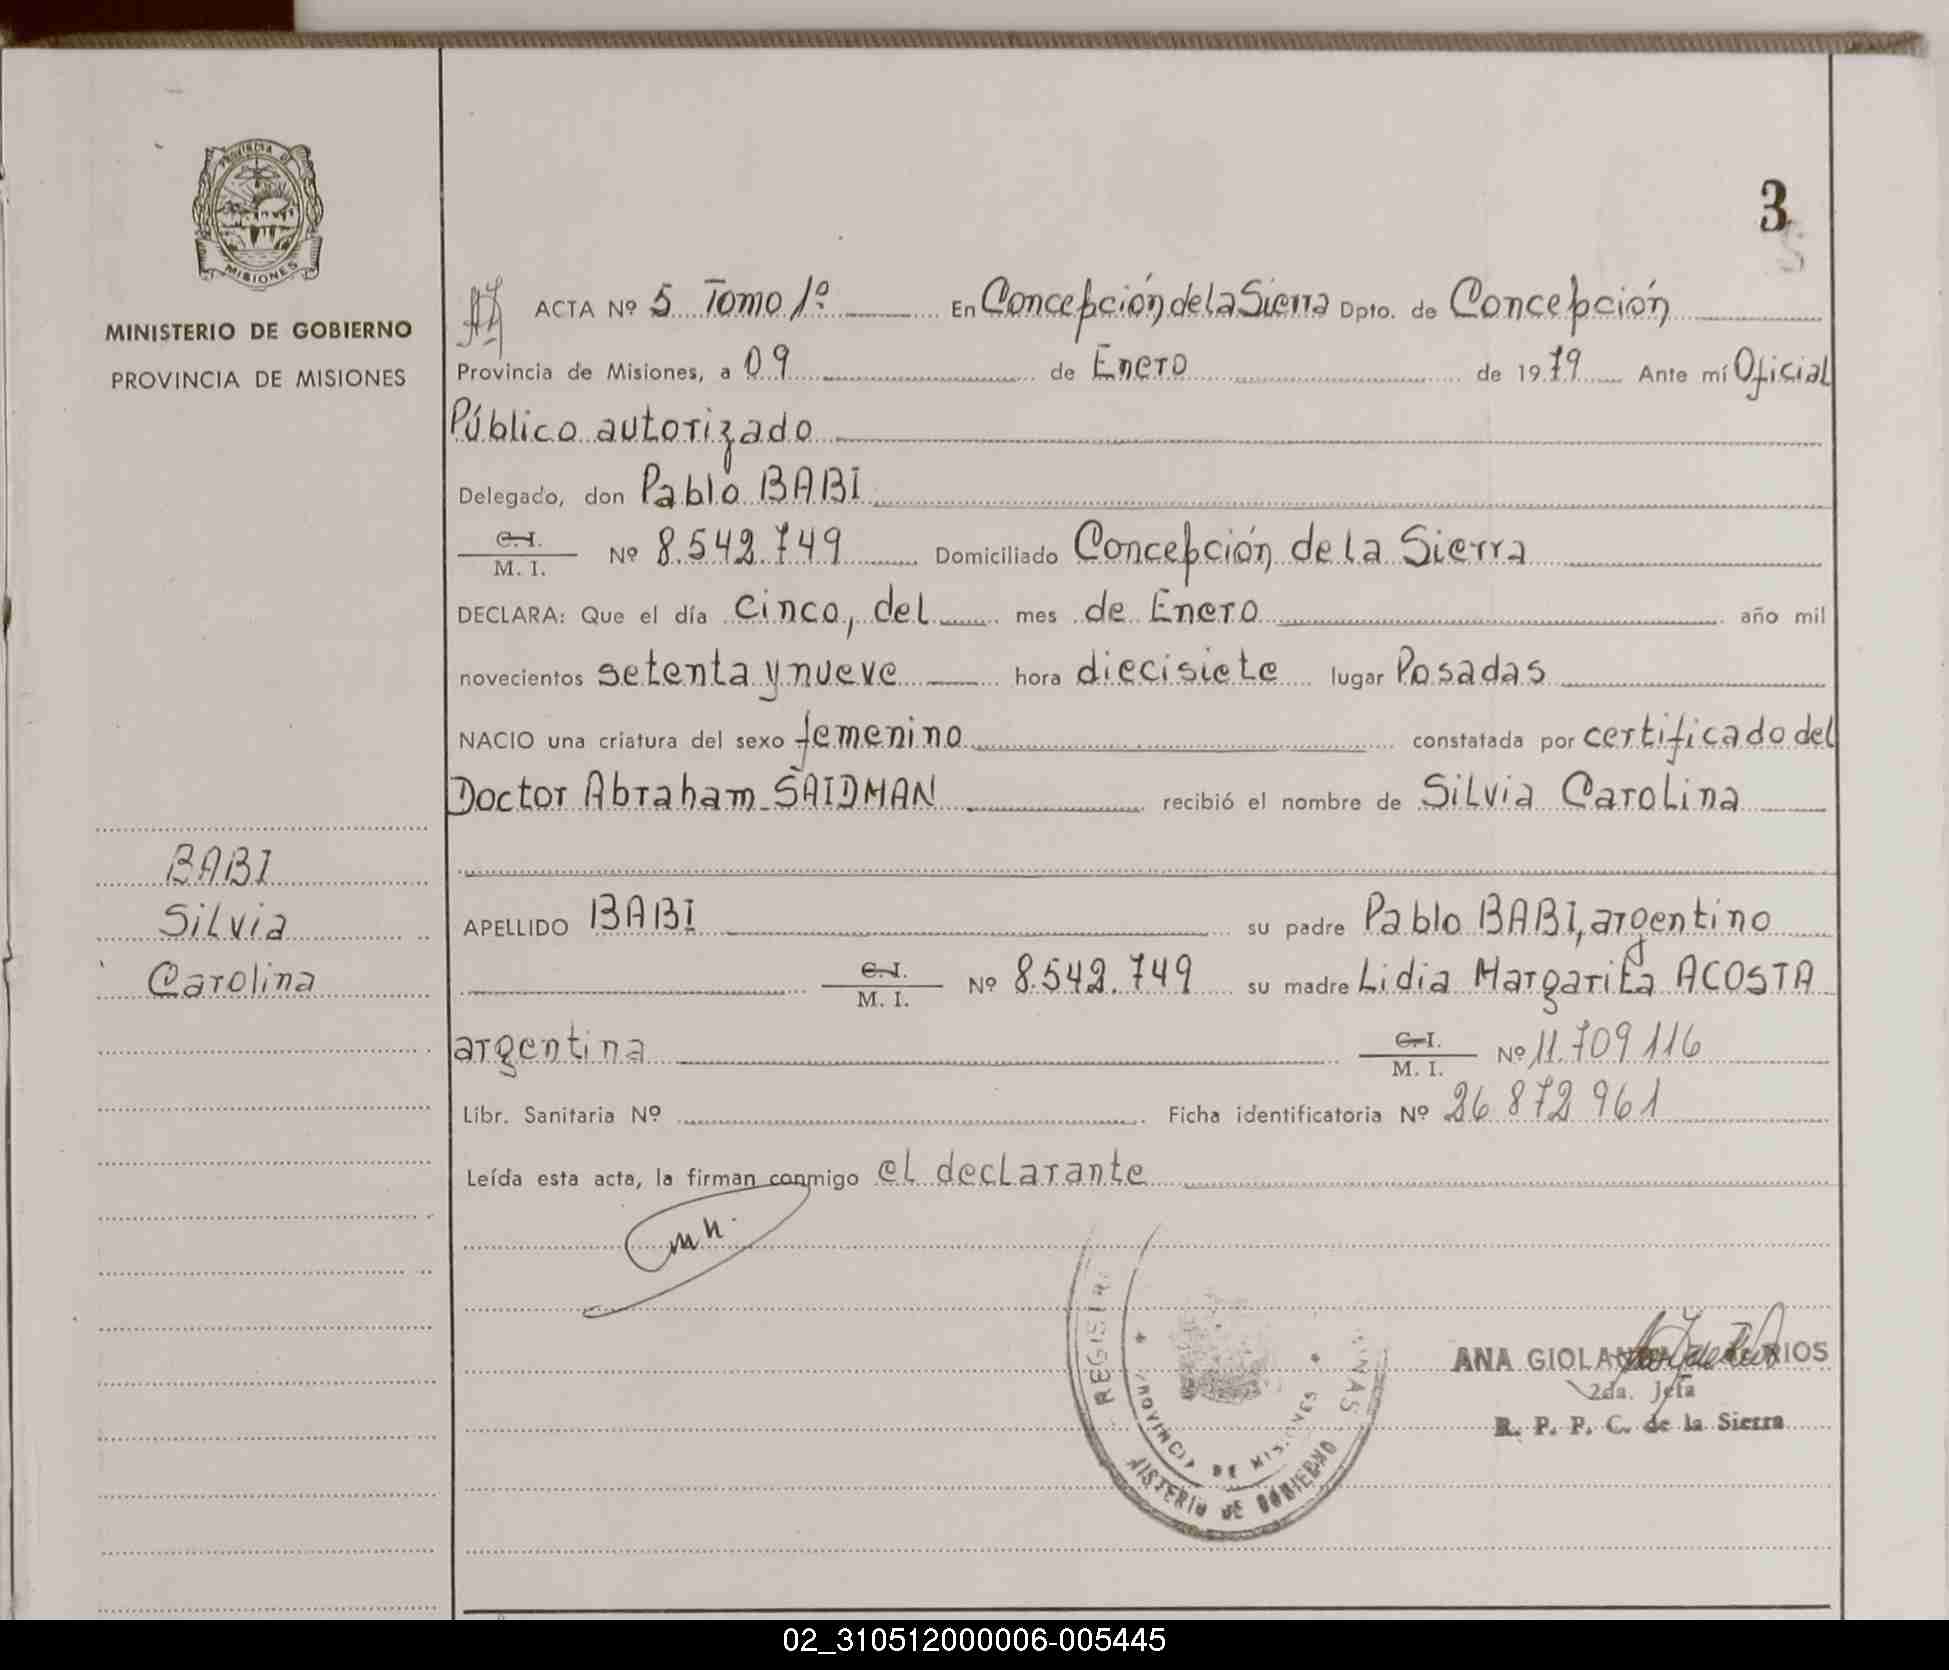 3
5
PROVINCIA DE
MISIONES
MINISTERIO DE GOBIERNO
PROVINCIA DE MISIONES
ACTA Nº 5 Tomo 1º En Concepción de la Sierra Dpto. de Concepción
Provincia de Misiones, a 09 de Enero de 1979 Ante mí Oficial
Público autorizado
Delegado, don Pablo BABI
C.I.
M. I. Nº 8.542.749 Domiciliado Concepción de la Sierra
DECLARA: Que el día cinco, del mes de Enero año mil
novecientos setenta y nueve hora diecisiete lugar Posadas
NACIO una criatura del sexo femenino constatada por certificado del
Doctor Abraham SAIDMAN recibió el nombre de Silvia Carolina
BABI
Silvia
Carolina
APELLIDO BABI su padre Pablo BABI, argentino
C.I.
M. I. Nº 8.542.749 su madre Lidia Margarita ACOSTA
argentina C.I.
M. I. Nº 11.709 116
Libr. Sanitaria Nº Ficha identificatoria Nº 26 872 961
Leída esta acta, la firman conmigo el declarante
REGISTR
PROVINCIA DE MISIONES
NISTERIO DE GOBIERNO
ANA RIOS
2da. Jefa
R. P. P. C. de la Sierra
02_310512000006-005445